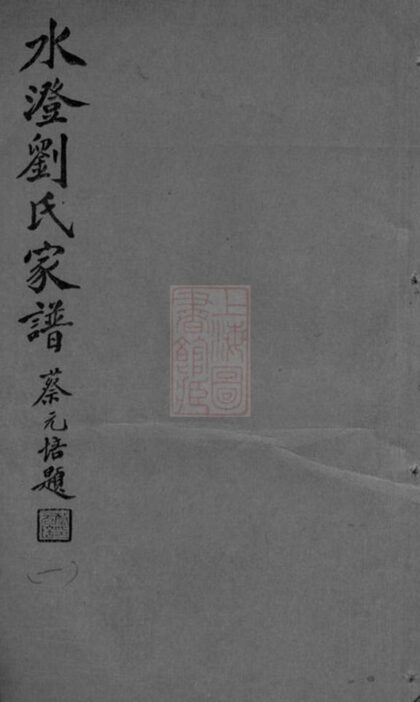 水澄劉氏家譜
蔡元培題
(一)
上海圖
書館藏